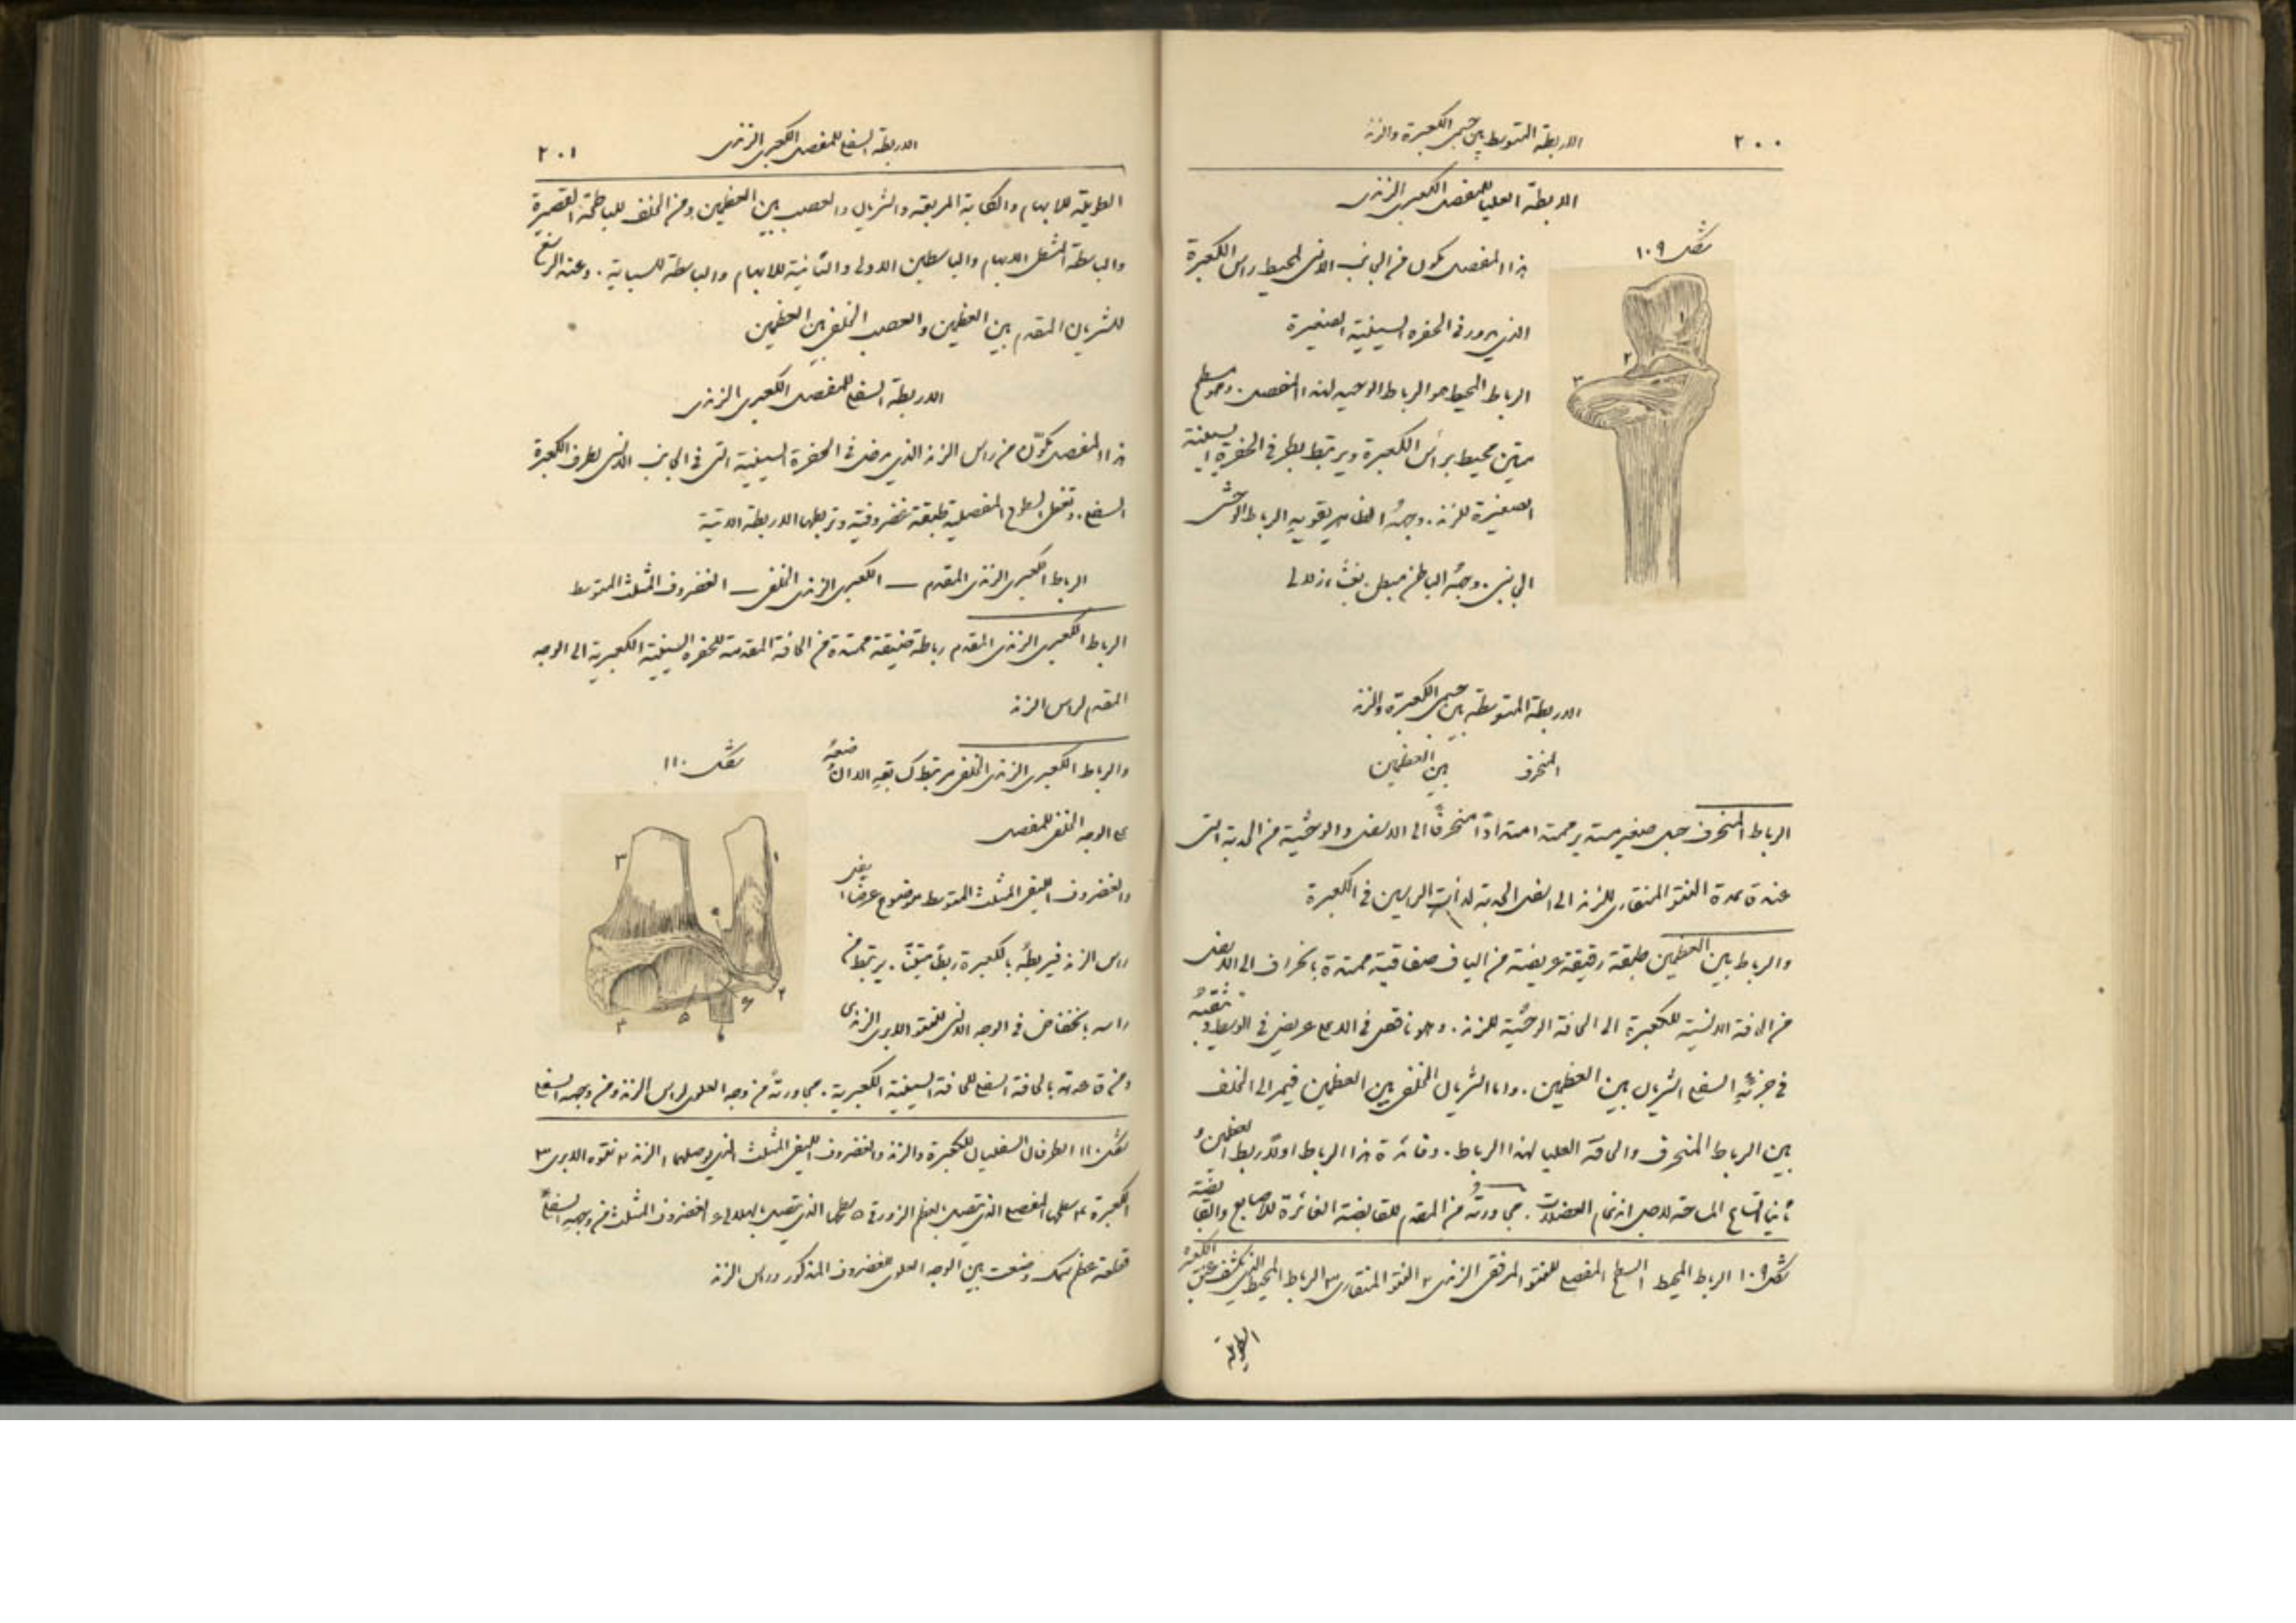 ٢٠٠
الاربطة المتوسطة بين جسمي الكعبرة والزند
الاربطة العليا للمفصل الكعبري الزندي
شكل ١٠٩
هذا المفصل مكون من الجانب الانسي لمحيط راس الكعبرة
الذي يدور في الحفرة السينية الصغيرة
الرباط المحيط هو الرباط الوحيد لهذا المفصل . وهو
متين محيط براس الكعبرة ويرتبط بطرفي الحفرة السينية
الصغيرة للزند . وجهه الظاهر يقويه الرباط الوحشي
الجانبي . وجهه الباطن مبطن بغشاء زلالي
١
٢
٣
الاربطة المتوسطة بين جسمي الكعبرة والزند
المنحرف بين العظمين
الرباط المنحرف حبل صغير مستدير ممتد امتدادًا منحرفًا الى الاسفل والوحشية من الحدبة التي
عند قاعدة النتو المنقاري للزند الى اسفل الحدبة ذات الراسين في الكعبرة
والرباط بين العظمين طبقة رقيقة عريضة من الياف صفاقية ممتدة بانحراف الى الاسفل
من الحافة الانسية للكعبرة الى الحافة الوحشية للزند . وهو ناقص في الاعلى عريض في الوسط وتثقبه
في جزئه السفلي الشريان بين العظمين . واما الشريان الخلفي بين العظمين فيمر الى الخلف
بين الرباط المنحرف والحافة العليا لهذا الرباط . وفائدة هذا الرباط اولًا ربط العظمين و
ثانيا اتساع المساحة لاجل اندغام العضلات . مجاورته من المقدم للقابضة الغائرة للاصابع والقابضة
شكل ١٠٩ الرباط المحيط ١ السطح المفصلي للنتو المرفقي الزندي ٢ النتو المنقاري ٣ الرباط المحيط الذي يكتنف عنق الكعبرة
الطويلة
الاربطة السفلى للمفصل الكعبري الزندي
٢٠١
الطويلة للابهام والكابة المربعة والشريان والعصب بين العظمين ومن الخلف للباطحة القصيرة
والباسطة لمشط الابهام والباسطين الاولى والثانية للابهام والباسطة للسبابة . وعند الرسغ
للشريان المقدم بين العظمين والعصب الخلفي بين العظمين
الاربطة السفلى للمفصل الكعبري الزندي
هذا المفصل مكوّن من راس الزند الذي يدخل في الحفرة السينية التي في الجانب الانسي لطرف الكعبرة
السفلي . وتغطي السطوح المفصلية طبقة غضروفية وتربطها الاربطة الاتية
الرباط الكعبري الزندي المقدم — الكعبري الزندي الخلفي — الغضروف المثلث المتوسط
الرباط الكعبري الزندي المقدم رباطة ضيقة ممتدة من الحافة المقدمة للحفرة السينية الكعبرية الى الوجه
المقدم لراس الزند
والرباط الكعبري الزندي الخلفي مرتبط كسابقه الا ان وضعه
شكل ١١٠
على الوجه الخلفي للمفصل
والغضروف الليفي المثلث المتوسط موضوع عرضًا اسفل
راس الزند فيربطه بالكعبرة ربطًا متينًا . يرتبط من
راسه بانخفاض في الوجه الانسي للنتو الابري الزندي
١
٢
٣
٤
٥
٦
ومن قاعدته بالحافة السفلى للحافة السينية الكعبرية . مجاورته من وجهه العلوي لراس الزند ومن وجهه السفلي
شكل ١١٠ الطرفان السفليان للكعبرة والزند والغضروف الليفي المثلث الذي يوصلهما ١ الزند ٢ نتوه الابري ٣
الكعبرة ٤ سطحها المفصلي الذي يتصل بالعظم الزورقي ٥ سطحها الذي يتصل بالهلالي ٦ الغضروف المثلث من وجهه السفلي
قطعة عظم سمك وضعت بين الوجه العلوي للغضروف المذكور وراس الزند